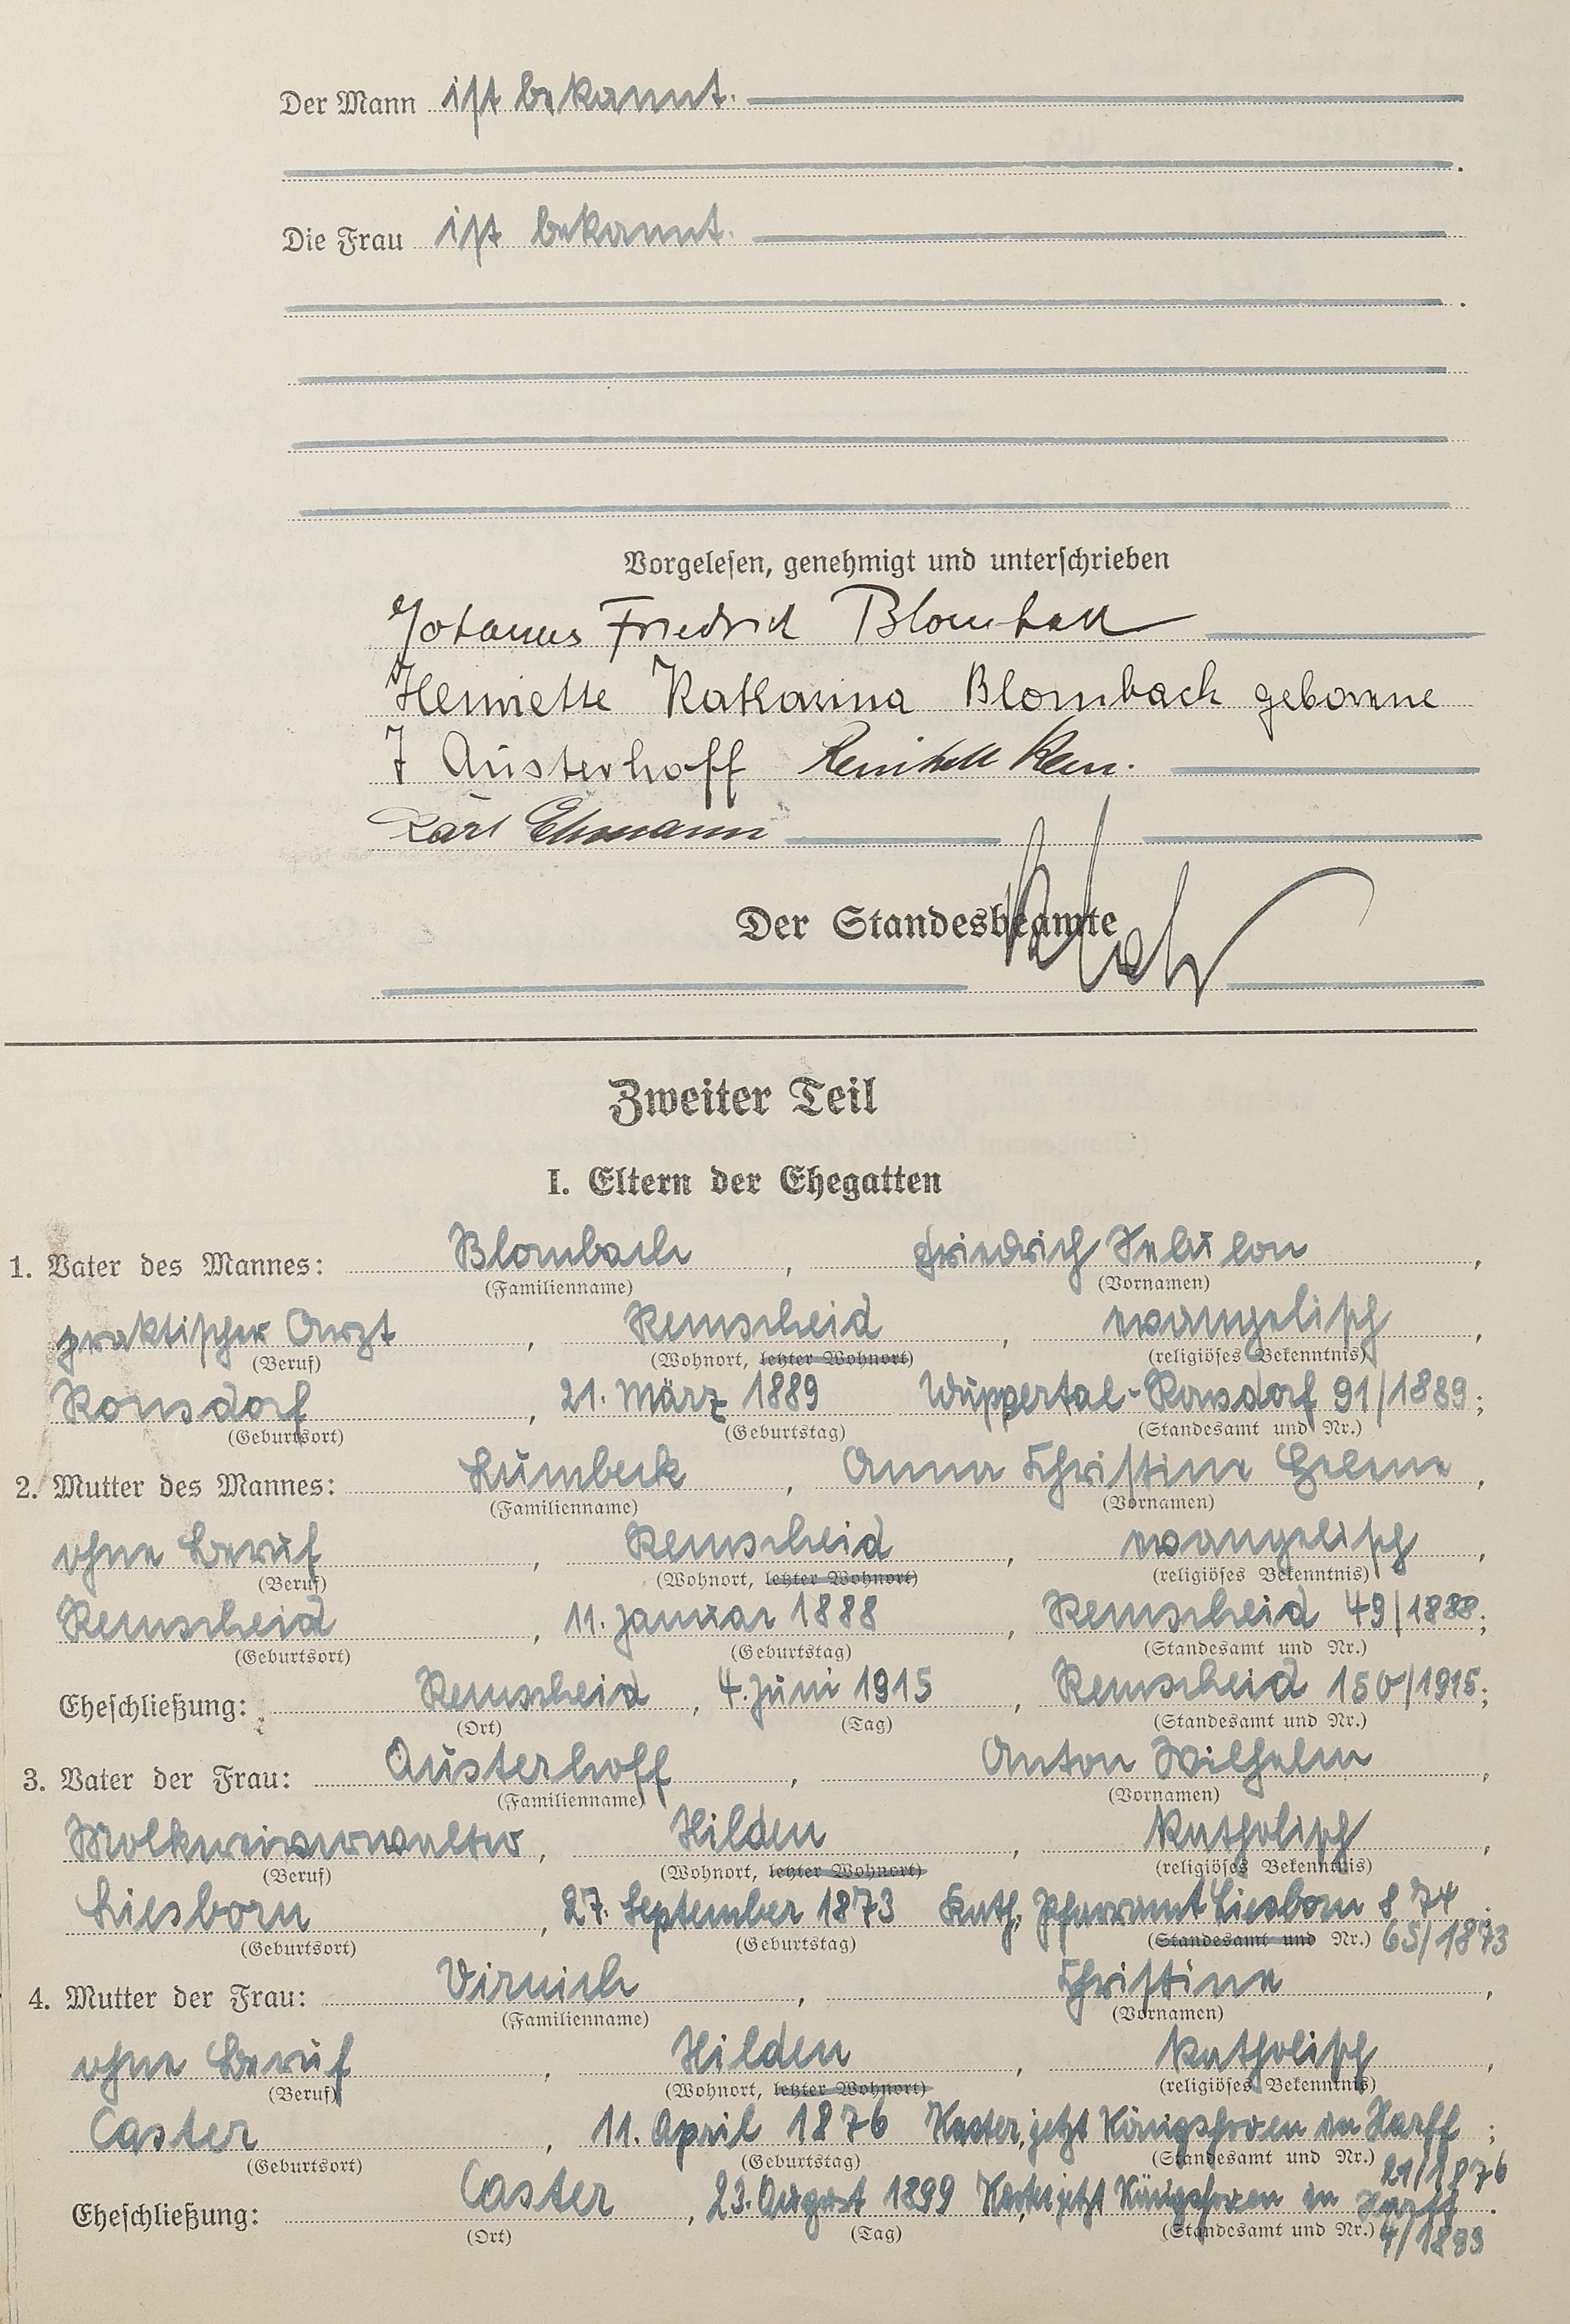 Der Mann ist bekannt.
Die Frau ist bekannt.
Vorgelesen, genehmigt und unterschrieben
Johannes Friedrich Blombach
Henriette Katharina Blombach geborene
Austerhoff
Karl
Der Standesbeamte
Zweiter Teil
I. Eltern der Ehegatten
1. Vater des Mannes: Blombach, Friedrich Sebulon,
(Familienname) (Vornamen)
praktischer Arzt, Remscheid, evangelisch,
(Beruf) (Wohnort, letzter Wohnort) (religiöses Bekenntnis)
Ronsdorf, 21. März 1889 Wuppertal-Ronsdorf 91/1889;
(Geburtsort) (Geburtstag) (Standesamt und Nr.)
2. Mutter des Mannes: Lumbeck, Anna Christine Helene,
(Familienname) (Vornamen)
ohne Beruf, Remscheid, evangelisch,
(Beruf) (Wohnort, letzter Wohnort) (religiöses Bekenntnis)
Remscheid, 11. Januar 1888, Remscheid 49/1888;
(Geburtsort) (Geburtstag) (Standesamt und Nr.)
Eheschließung: Remscheid, 4. Juni 1915, Remscheid 150/1915;
(Ort) (Tag) (Standesamt und Nr.)
3. Vater der Frau: Austerhoff, Anton Wilhelm,
(Familienname) (Vornamen)
Molkereiverwalter, Hilden, katholisch,
(Beruf) (Wohnort, letzter Wohnort) (religiöses Bekenntnis)
Liesborn, 27. September 1873 Kath. Pfarramt Liesborn S 74
(Geburtsort) (Geburtstag) (Standesamt und Nr.) 65/1873
4. Mutter der Frau: Virnich, Christine,
(Familienname) (Vornamen)
ohne Beruf, Hilden, katholisch,
(Beruf) (Wohnort, letzter Wohnort) (religiöses Bekenntnis)
Caster, 11. April 1876 Kaster, jetzt Königshoven in Harff;
(Geburtsort) (Geburtstag) (Standesamt und Nr.) 21/1876
Eheschließung: Caster, 23. August 1899 Kaster jetzt Königshoven in Harff.
(Ort) (Tag) (Standesamt und Nr.) 4/1899